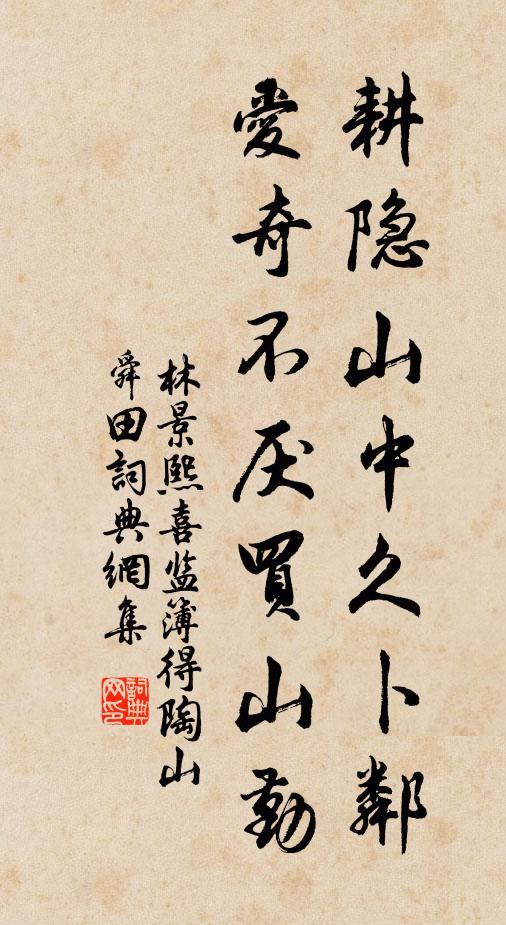 耕隐山中久卜鄰
愛奇不厌買山勤
林景熙喜监簿得陶山
舜田詞典網集
詞典网印